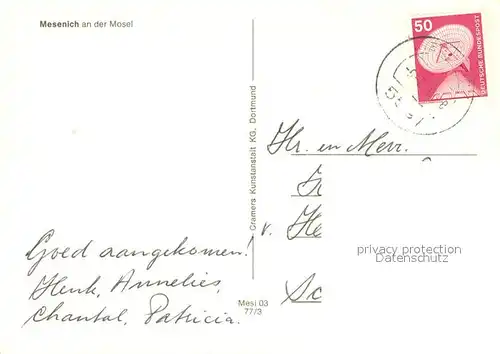 Mesenich an der Mosel
50
DEUTSCHE BUNDESPOST
Hr. en Mevr.
v. He
privacy protection
Datenschutz
Sc
Goed aangekomen!
Henk, Annelies,
Chantal, Patricia.
Cramers Kunstanstalt KG, Dortmund
Mesi 03
77/3